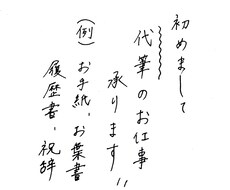 初めまして
代筆のお仕事
承ります!!
(例)お手紙、お葉書
履歴書、祝辞